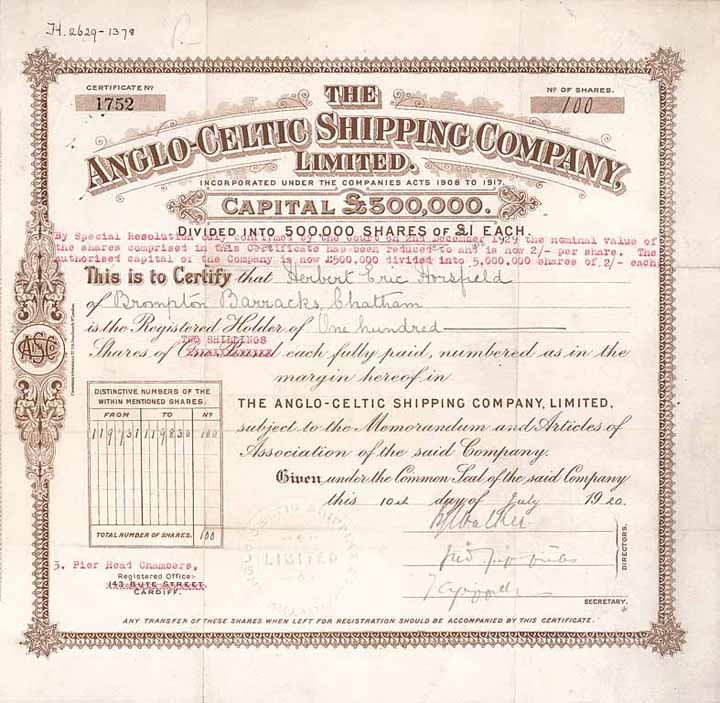 H. 2629-1378
CERTIFICATE Nº
1752
Nº OF SHARES.
100
THE
ANGLO-CELTIC SHIPPING COMPANY,
LIMITED.
INCORPORATED UNDER THE COMPANIES ACTS 1908 TO 1917.
CAPITAL £500,000.
DIVIDED INTO 500,000 SHARES OF £1 EACH.
By Special Resolution duly confirmed by the Court on 2nd December 1929 the nominal value of
the shares comprised in this Certificate has been reduced to and is now 2/- per share. The
authorised capital of the Company is now £500,000 divided into 5,000,000 shares of 2/- each
This is to Certify that Herbert Eric Horsfield
of Brompton Barracks, Chatham
is the Registered Holder of One hundred
TWO SHILLINGS
Shares of One Pound each fully paid, numbered as in the
margin hereof in
THE ANGLO-CELTIC SHIPPING COMPANY, LIMITED,
subject to the Memorandum and Articles of
Association of the said Company.
Given under the Common Seal of the said Company
this 10th day of July 1920.
ASC
DISTINCTIVE NUMBERS OF THE
WITHIN MENTIONED SHARES.
FROM TO Nº
119731 119830 100
TOTAL NUMBER OF SHARES. 100
DIRECTORS.
SECRETARY.
LIMITED
3. Pier Head Chambers,
Registered Office:-
143 BUTE STREET,
CARDIFF.
ANY TRANSFER OF THESE SHARES WHEN LEFT FOR REGISTRATION SHOULD BE ACCOMPANIED BY THIS CERTIFICATE.